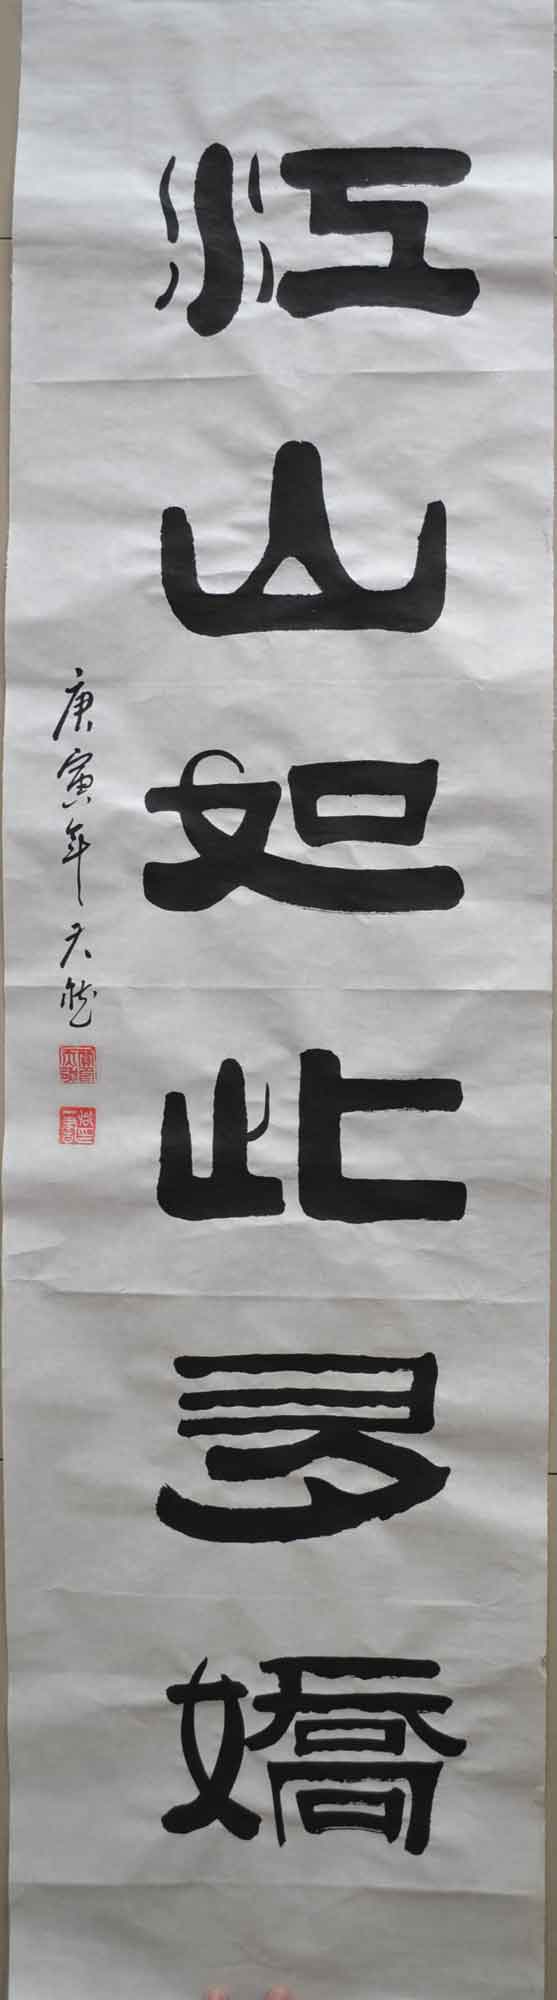 江山如此多嬌
庚寅年天